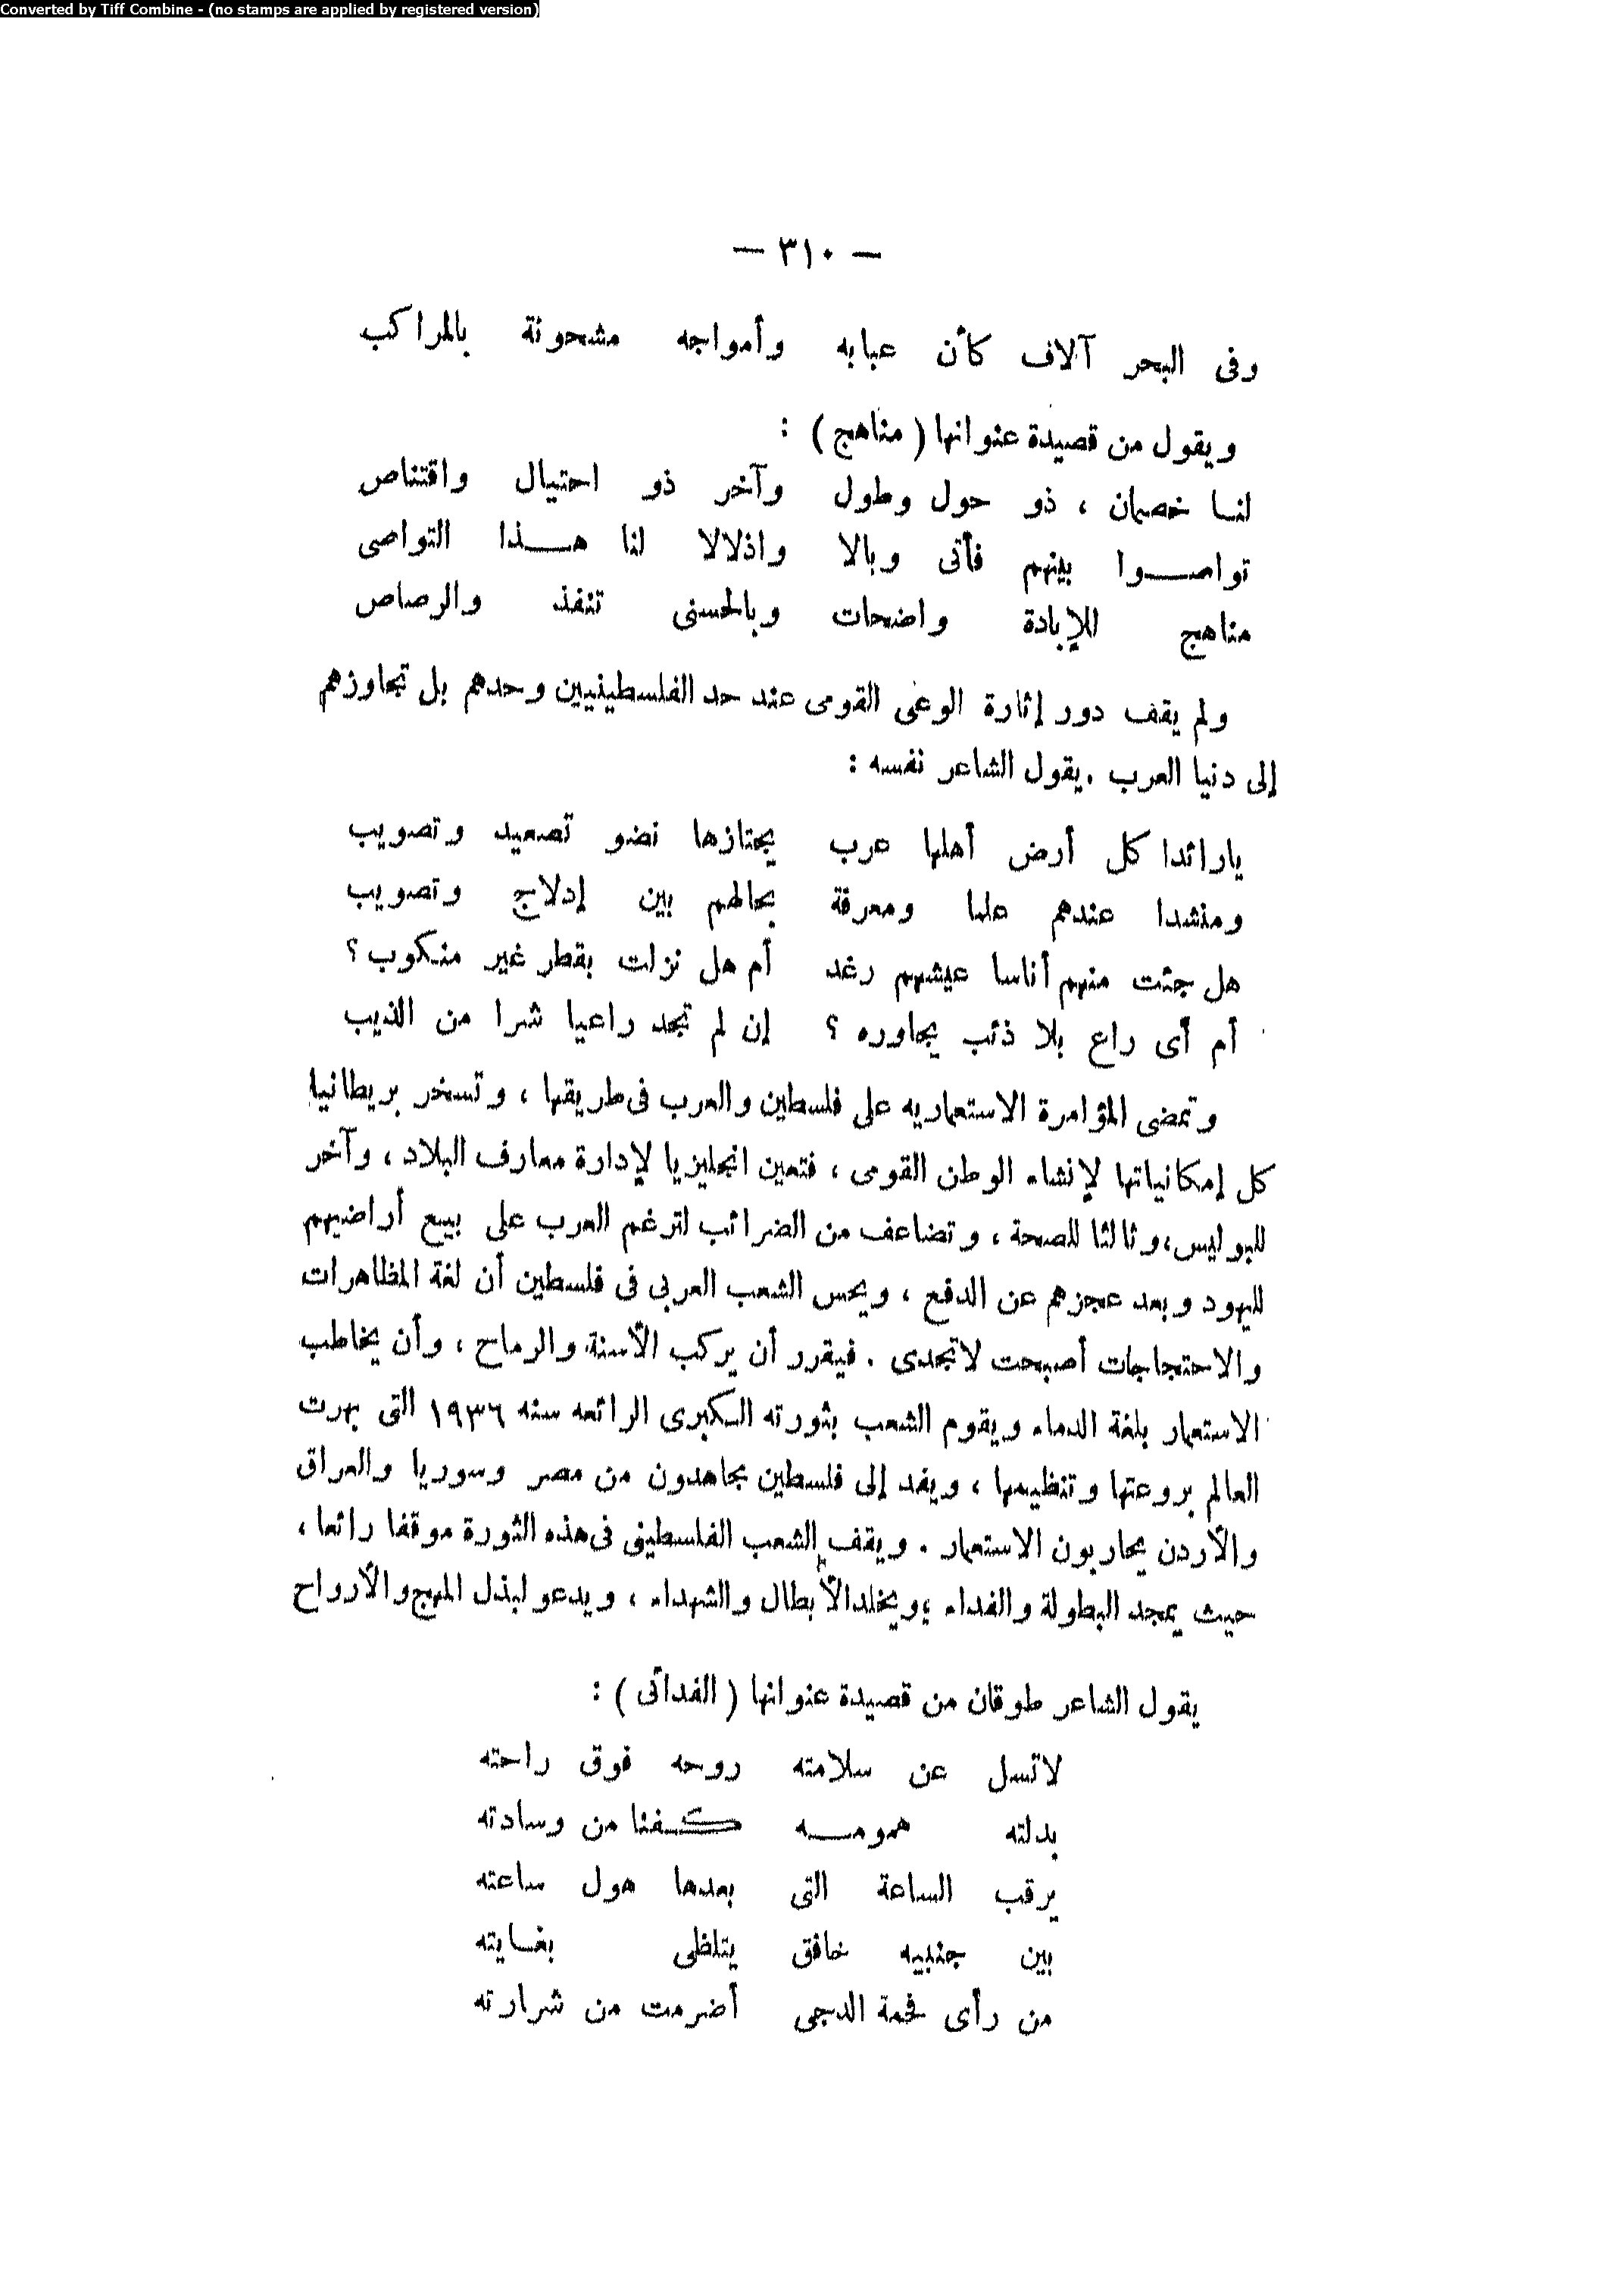 Converted by Tiff Combine - (no stamps are applied by registered version)
— ٣١٠ —
وفى البحر آلاف كأن عبابه وأمواجه مشحونة بالمراكب
ويقول من قصيدة عنوانها ( مناهج ) :
لنا خصمان ، ذو حول وطول وآخر ذو احتيال واقتناص
تواصوا بينهم فأتى وبالا واذلالا لنا هذا التواصى
مناهج للإبادة واضحات وبالحسنى تنفذ والرصاص
ولم يقف دور إثارة الوعى القومى عند حد الفلسطينيين وحدهم بل تجاوزهم
إلى دنيا العرب . يقول الشاعر نفسه :
يارائدا كل أرض أهلها عرب يجتازها نضو تصعيد وتصويب
ومنشدا عندهم علما ومعرفة بحالهم بين إدلاج وتصويب
هل جئت منهم أناسا عيشهم رغد أم هل نزلت بقطر غير منكوب ؟
أم أى راع بلا ذئب يجاوره ؟ إن لم تجد راعيا شرا من الذيب
وتمضى المؤامرة الاستعماريه على فلسطين والعرب فى طريقها ، وتسخر بريطانيا
كل إمكانياتها لإنشاء الوطن القومى ، فتعين انجليزيا لإدارة معارف البلاد ، وآخر
للبوليس، وثالثا للصحة ، وتضاعف من الضرائب لترغم العرب على بيع أراضيهم
لليهود وبعد عجزهم عن الدفع ، ويحس الشعب العربى فى فلسطين أن لغة المظاهرات
والاحتجاجات أصبحت لاتجدى . فيقرر أن يركب الأسنة والرماح ، وأن يخاطب
الاستعمار بلغة الدماء ويقوم الشعب بثورته الكبرى الرائعه سنه ١٩٣٦ التى بهرت
العالم بروعتها وتنظيمها ، ويفد إلى فلسطين مجاهدون من مصر وسوريا والعراق
والأردن يحاربون الاستعمار . ويقف الشعب الفلسطينى فى هذه الثورة موقفا رائعا ،
حيث يمجد البطولة والفداء ؛ ويخلد الأبطال والشهداء ، ويدعو لبذل المهج والأرواح
يقول الشاعر طوقان من قصيدة عنوانها ( الفدائى ) :
لاتسل عن سلامته روحه فوق راحته
بدلته همومه كفنا من وسادته
يرقب الساعة التى بعدها هول ساعته
بين جنبيه خافق يتلظى بغايته
من رأى فحمة الدجى أضرمت من شرارته